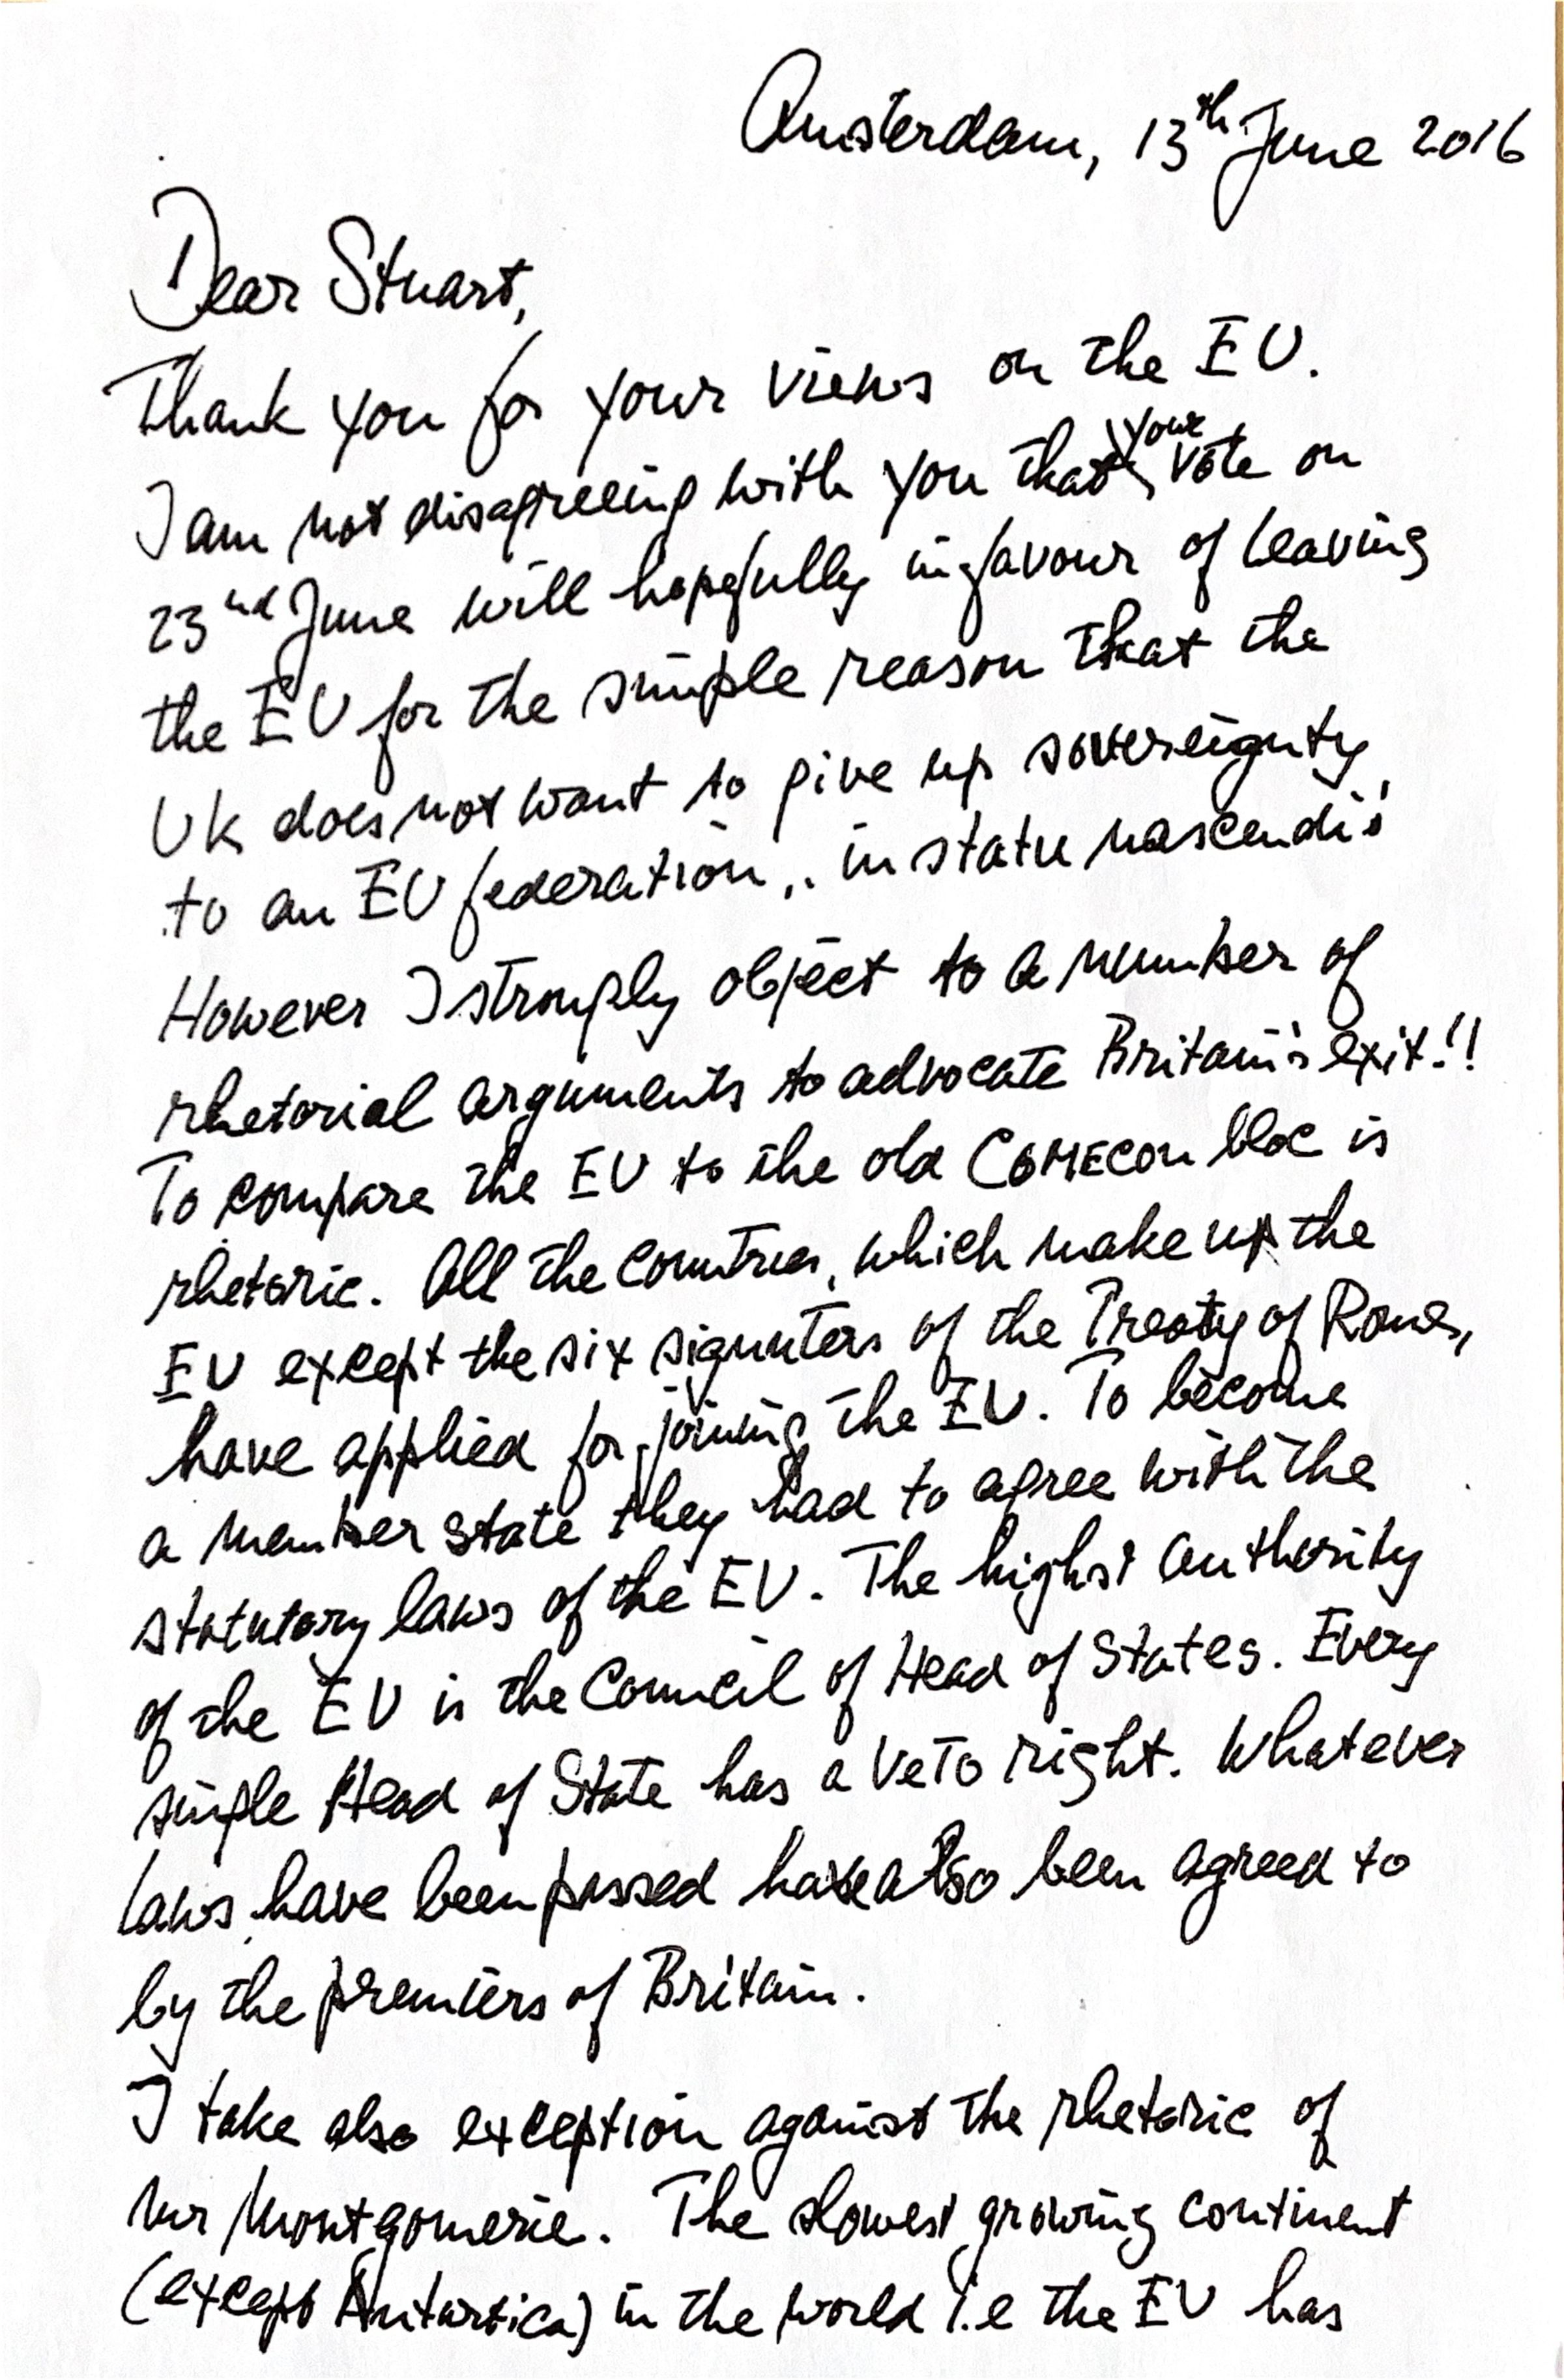 Amsterdam, 13th June 2016
Dear Stuart,
Thank you for your views on the EU.
I am not disagreeing with you that your vote on
23nd June will hopefully in favour of leaving
the EU for the simple reason that the
UK does not want to give up sovereignty
to an EU federation „in statu nascendi"
However I strongly object to a number of
rhetorial arguments to advocate Britain's exit!!
To compare the EU to the old COMECON bloc is
rhetoric. All the countries, which make up the
EU except the six signuters of the Treaty of Rome,
have applied for joining the EU. To become
a member state they had to agree with the
statutory laws of the EU. The highst authority
of the EU is the Council of Head of States. Every
single Head of State has a Veto right. Whatever
laws have been passed have also been agreed to
by the premiers of Britain.
I take also exception against the rhetoric of
Mr Montgomerie. The slowest growing continent
(except Antartica) in the world i.e the EU has